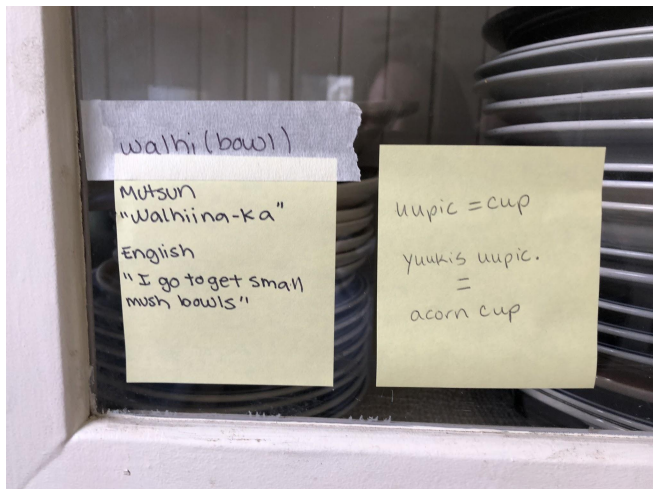 walhi (bowl)
Mutsun
"Walhiina-ka"
English
"I go to get small
mush bowls"
uupic = cup
yuukis uupic.
=
acorn cup